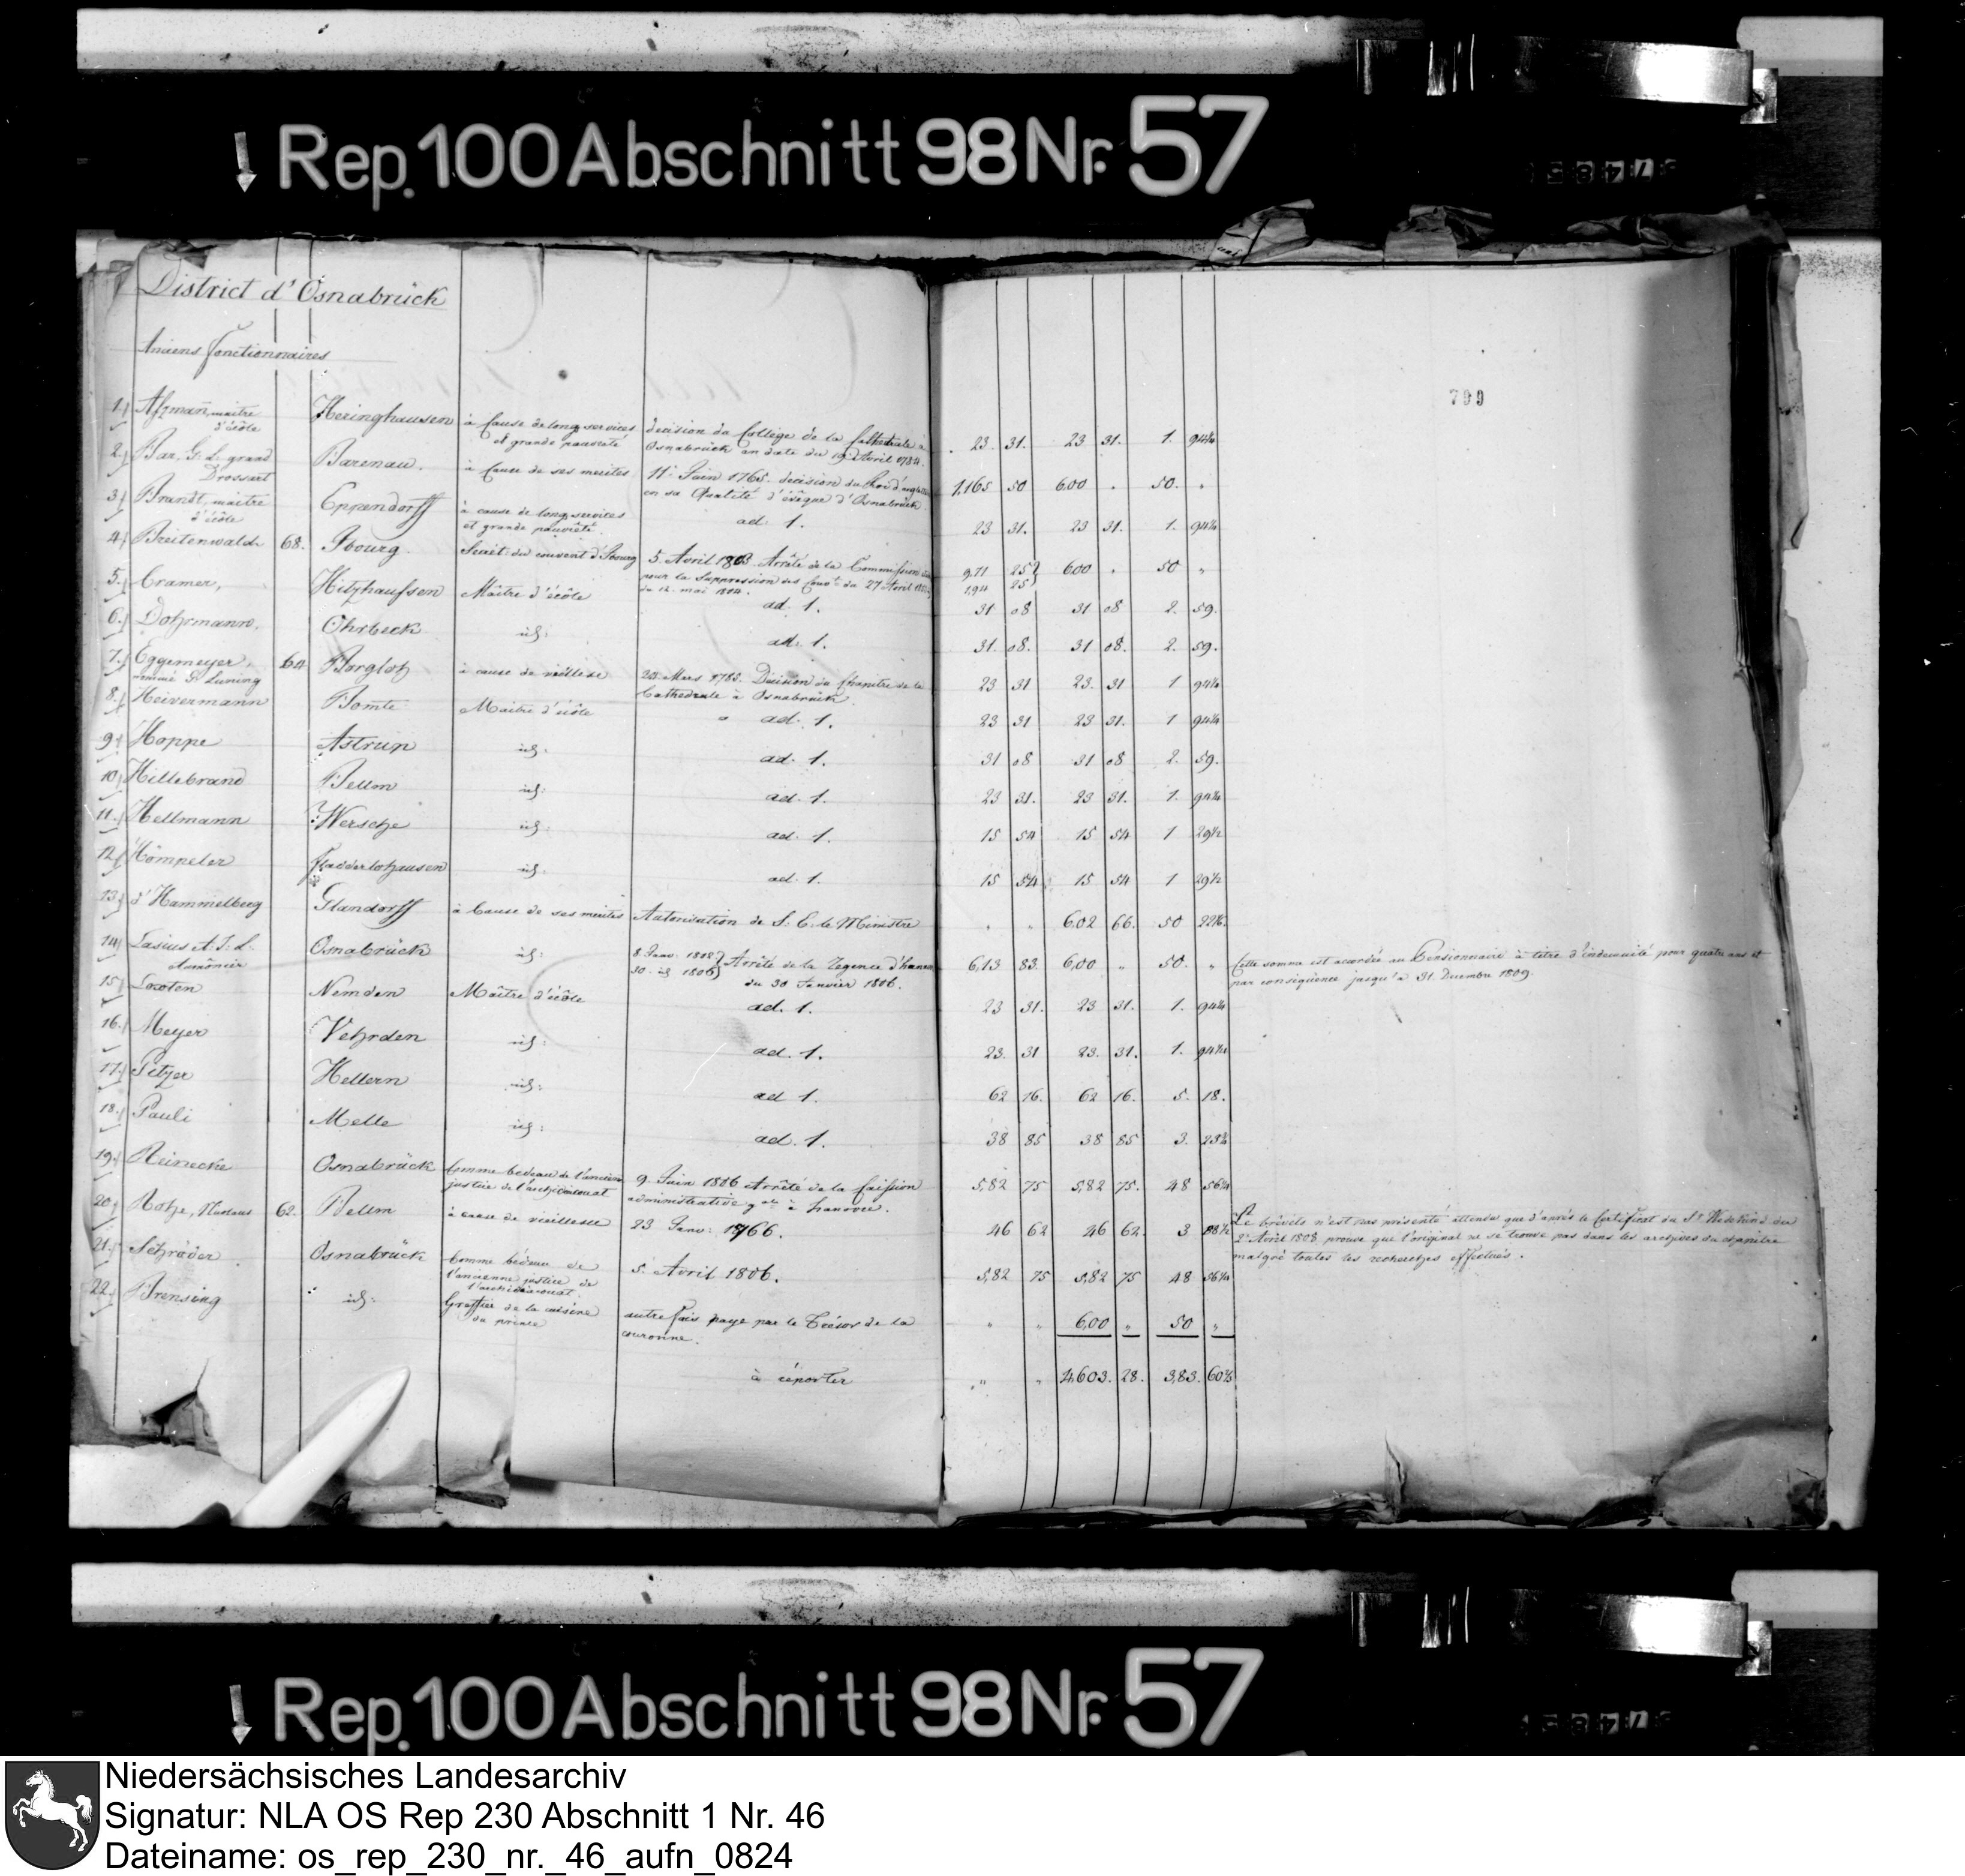 Rep. 100 Abschnitt 98 Nr. 57
District d'Osnabrück
Anciens fonctionnaires
799
1. maitre d'école Heringhausen à Cause de long services et grande pauvreté décision du Collège de la Cathedrale à Osnabrück en date du 19 Avril 1784. 23 31. 23 31. 1. 94¼
2. Bar, G. L. grand Drossart Barenau. à Cause de ses merites 11e Juin 1765. décision du Roi en sa Qualité d'évêque d'Osnabrück. 1,165 50 600 " 50. "
3. Brandt, maitre d'école Eppendorff à cause de long services et grande pauvreté ad. 1. 23 31. 23 31. 1. 94¼
4. Breitenwald 68. Ibourg. Secrét: du couvent d'Ibourg 5. Avril 1803 Arrêté de la Commission pour la Suppression des Couvts du 27 Avril du 12. mai 1804. 971 25 194 25 600 " 50 "
5. Cramer, Hitzhaussen Maitre d'école ad. 1. 31 08 31 08 2. 59.
6. Dohrmann, Ohrbeck id: ad. 1. 31. 08. 31 08. 2. 59.
7. Eggemeyer, nommé Luning 64 Borgloh à cause de vieillesse Mars 1783. Décision du Chapitre de la Cathedrale à Osnabrück. 23 31 23. 31 1 94¼
8. Heivermann Bomte Maitre d'école ad. 1. 23 31 23 31. 1 94¼
9. Hoppe Astrup id: ad. 1. 31 08 31 08 2. 59.
10. Hillebrand Bellm id: ad. 1. 23 31. 23 31. 1. 94¼
11. Hellmann Wersche id: ad. 1. 15 54 15 54 1 29½
12. Hömpeler Fladderlohausen id: ad. 1. 15 54 15 54 1 29½
13. d'Hammelberg Glandorff à Cause de ses merites Autorisation de S. E. le Ministre " " 602 66. 50
14. Lasius A. J. L. Aumônier Osnabrück id: 8 Janv. 1802 30. id 1806 Arrêté de la Regence d'hanovre du 30 Janvier 1806. 613 83. 600 " 50. " Cette somme est accordée au Pensionnaire à titre d'indemnité pour quatre ans et par conséquence jusqu'à 31 Decembre 1809.
15. Looten Nemden Maître d'école ad. 1. 23 31. 23 31. 1. 94¼
16. Meyer Vehrden id: ad. 1. 23. 31 23. 31. 1. 94¼
17. Petzer Hellern id: ad 1. 62 16. 62 16. 5. 18.
18. Pauli Melle id: ad. 1. 38 85 38 85 3.
19. Reinecke Osnabrück Comme bedeau de l'ancienne justice de l'archidiaconat 9. Juin 1806 Arrêté de la administrative gale à hanovre. 582 75 582 75. 48 56¼
20. Rohe, Nicolaus 62. Bellm à cause de vieillesse 23 Janv: 1766. 46 62 46 62. 3 88½ Le brévets n'est pas présenté attendu que d'après le Certificat du Sr du 2 Avril 1808 prouve que l'original ne se trouve pas dans les archives du chapitre malgré toutes les recherches effectués.
21. Schröder Osnabrück Comme bédeau de l'ancienne justice de l'archidiaconat. 5. Avril 1806. 582 75 582 75 48 56¼
22. Brensing id: Greffier de la cuisine du prince autrefois payé par le Trésor de la couronne. " " 600 " 50 "
à réporter " " 4,603. 28. 383. 60⅔
Rep. 100 Abschnitt 98 Nr. 57
Niedersächsisches Landesarchiv
Signatur: NLA OS Rep 230 Abschnitt 1 Nr. 46
Dateiname: os_rep_230_nr._46_aufn_0824